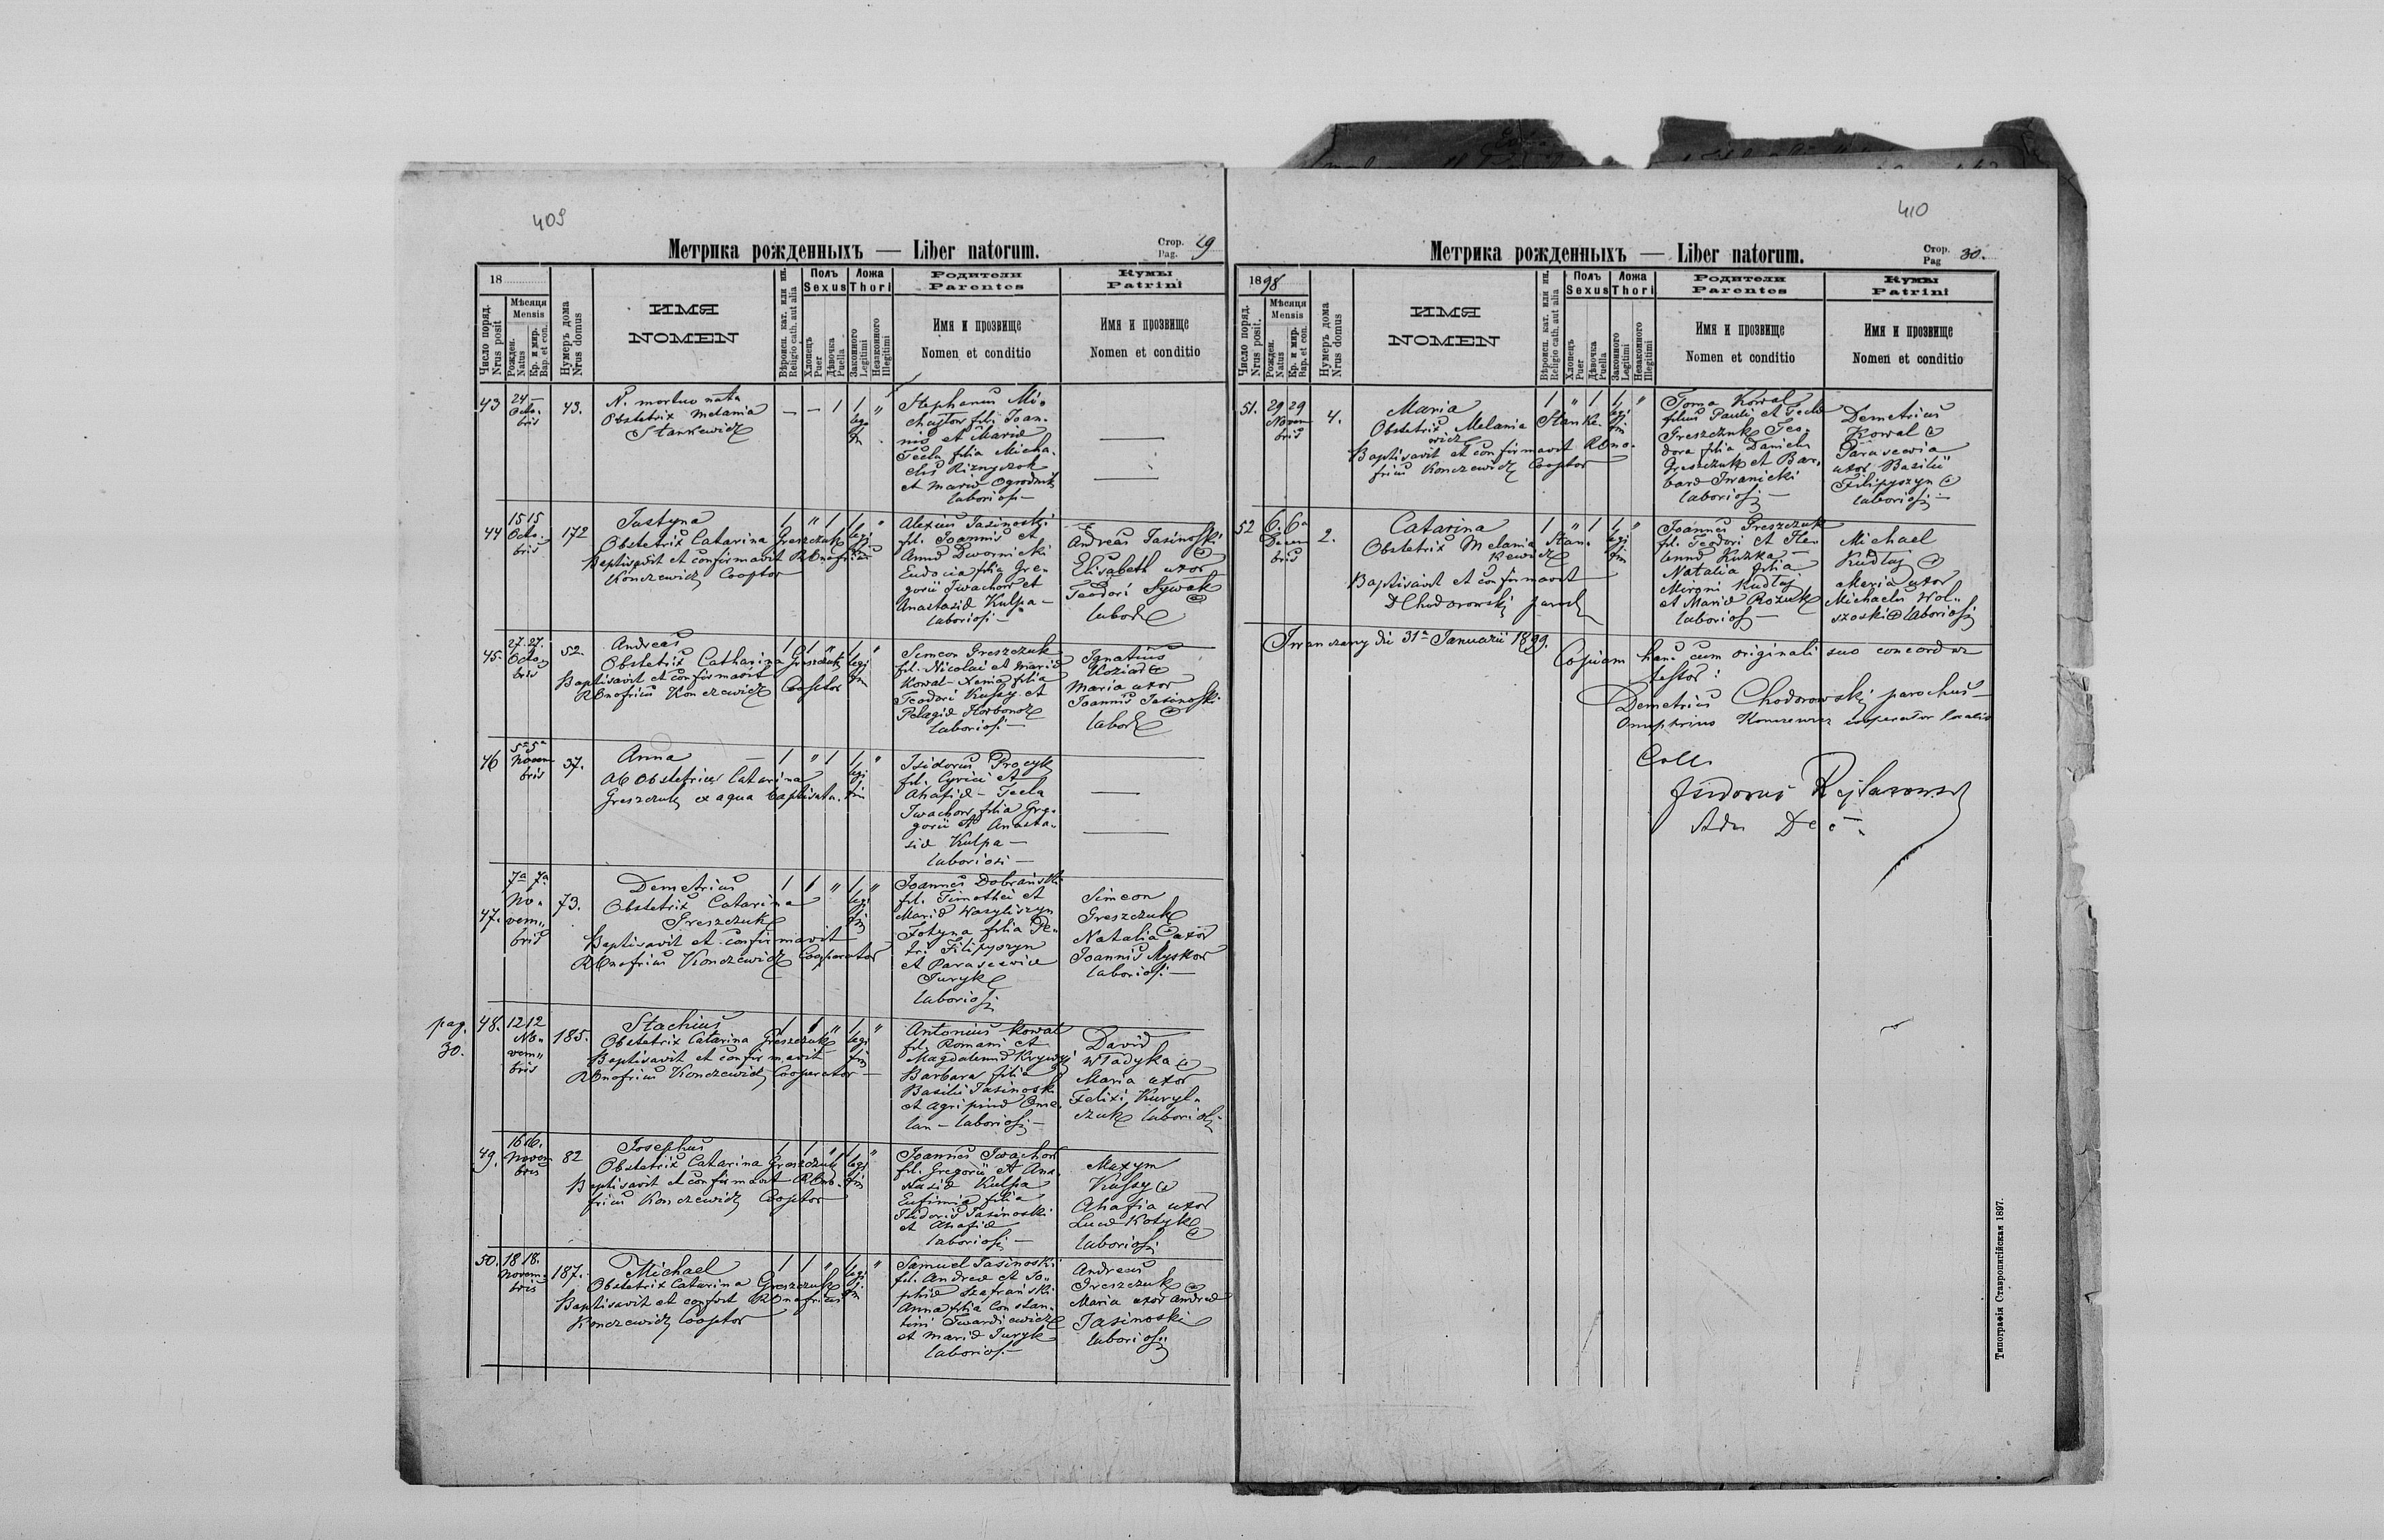 409
Метрика рожденныхъ — Liber natorum.
Стор. Pag. 29
18
Число поряд. Nrus posit
Мѣсяця Mensis
Рожден. Natus
Кр. и мир. Bap. et con.
Нумеръ дома Nrus domus
ИМЯ
NOMEN
Вѣроисп. кат. или ин. Religio cath. aut alia
Полъ Sexus
Хлопецъ Puer
Дѣвочка Puella
Ложа Thori
Законного Legitimi
Незаконного Illegitimi
Родители
Parentes
Имя и прозвище
Nomen et conditio
Кумы
Patrini
Имя и прозвище
Nomen et conditio
43 24 — Octobris 43.
N. mortuo nata
Obstetrix Melania
Stankewicz
— — 1 1 legitim "
Stephanus Mi-
chajlow fil. Joan-
nis et Maria
Tecla filia Micha-
elis Riznyczok
et Maria Ogrodnik
laboriosi —
44 15 15 Octobris 172
Justyna
Obstetrix Catarina Greszczuk
Baptisavit et confirmavit R Onofrius
Konczewicz Cooptor
1 " 1 1 legitim "
Alexius Jasinoski
fil. Joannis et
Anna Dwornicki
Eudocia filia Gre-
gorii Iwachow et
Anastasia Kulpa —
laboriosi —
Andreas Jasinoski
Elisabeth uxor
Teodori Sywak
labor
45. 27. 27. Octobris 52.
Andreas
Obstetrix Catharina Greszczuk
Baptisavit et confirmavit
R Onofrius Konczewicz Cooptor
1 1 " 1 legitim "
Simeon Greszczuk
fil. Nicolai et Maria
Kowal — Xenia filia
Teodori Kussy et
Pelagia Horbonos
laboriosi —
Ignatius
Koziar
Maria uxor
Joannis Jasinoski
labor
46 5a 5a Novembris 37.
Anna —
Ab Obstetrice Catarina
Greszczuk ex aqua baptisata.
1 " 1 1 legitim "
Isidorus Procyk
fil. Cyrici et
Ahafia — Tecla
Iwachow filia Gre-
gorii et Anasta-
sia Kulpa —
laboriosi —
47. 7a 7a No-vem-bris 73.
Demetrius
Obstetrix Catarina
Greszczuk
Baptisavit et confirmavit
R Onofrius Konczewicz Cooperator
1 1 " 1 legitim "
Joannes Dobrański
fil. Timothei et
Maria Wasyliszyn
Fotyna filia Pe-
tri Filipyszyn
et Parascevia
Juryk
laboriosi
Simeon
Greszczuk
Natalia uxor
Joannis Myskow
laboriosi —
pag. 30.
48. 12 12 No-vem-bris 185.
Stachius
Obstetrix Catarina Greszczuk
Baptisavit et confirmavit
R Onofrius Konczewicz Cooperator —
1 1 " 1 legitim "
Antonius Kowal
fil. Romani et
Magdalena Krywyj
Barbara filia
Basilii Jasinoski
et Agripina Ome-
lan — laboriosi —
David
Władyka
Maria uxor
Felixi Kuryl-
czuk laboriosi
49. 16 16. Novembris 82
Josephus
Obstetrix Catarina Greszczuk
Baptisavit et confirmavit R Ono-
frius Konczewicz Cooptor
1 1 " 1 legitim "
Joannes Iwachow
fil. Gregorii et Ana-
stasia Kulpa
Eufimia filia
Isidoris Jasinoski
et Ahafia
laboriosi —
Maxym
Kussy
Ahafia uxor
Luca Kotyk
laboriosi
50. 18 18. Novembris 187.
Michael
Obstetrix Catarina Greszczuk
Baptisavit et confirt R Onofrius
Konczewicz Cooptor
1 1 " 1 legitim "
Samuel Jasinoski
fil. Andrea et So-
phia Szafrański
Anna filia Constan-
tini Twardiewicz
et Maria Juryk
laboriosi —
Andreas
Greszczuk
Maria uxor Andrea
Jasinoski
laboriosi
410
Метрика рожденныхъ — Liber natorum.
Стор. Pag 30.
1898
Число поряд. Nrus posit.
Мѣсяця Mensis
Рожден. Natus
Кр. и мир. Bap. et con.
Нумеръ дома Nrus domus
ИМЯ
NOMEN
Вѣроисп. кат. или ин. Religio cath. aut alia
Полъ Sexus
Хлопецъ Puer
Дѣвочка Puella
Ложа Thori
Законного Legitimi
Незаконного Illegitimi
Родители
Parentes
Имя и прозвище
Nomen et conditio
Кумы
Patrini
Имя и прозвище
Nomen et conditio
51. 29 29 Novembris 4.
Maria
Obstetrix Melania Stanke-
wicz
Baptisavit et confirmavit R Ono-
frius Konczewicz Cooptor
1 " 1 1 legitim "
Toma Kowal
filius Pauli et Tecla
Greszczuk Teo-
dora filia Danielis
Greszczuk et Bar-
bara Iwanicki
laboriosi —
Demetrius
Kowal
Parascevia
uxor Basilii
Filipyszyn
laboriosi —
52 6. 6a Decembris 2.
Catarina
Obstetrix Melania Stan-
kewicz
Baptisavit et confirmavit
D Chodorowski paroch
1 " 1 1 legitim "
Joannes Greszczuk
fil. Teodori et He-
lenna Kuzka —
Natalia filia
Mironi Kudłaj
et Maria Rożuk
laboriosi —
Michael
Kudłaj
Maria uxor
Michaelis Wol-
szoski laboriosi
Iwanczany die 31a Januarii 1899.
Copiam hanc cum originali suo concordare
testor:
Demetrius Chodorowski parochus
Onuphrius Konczewicz cooperator localis
Coll.
Isidorus
Adm Dec
Типографія Ставропигійская 1897.